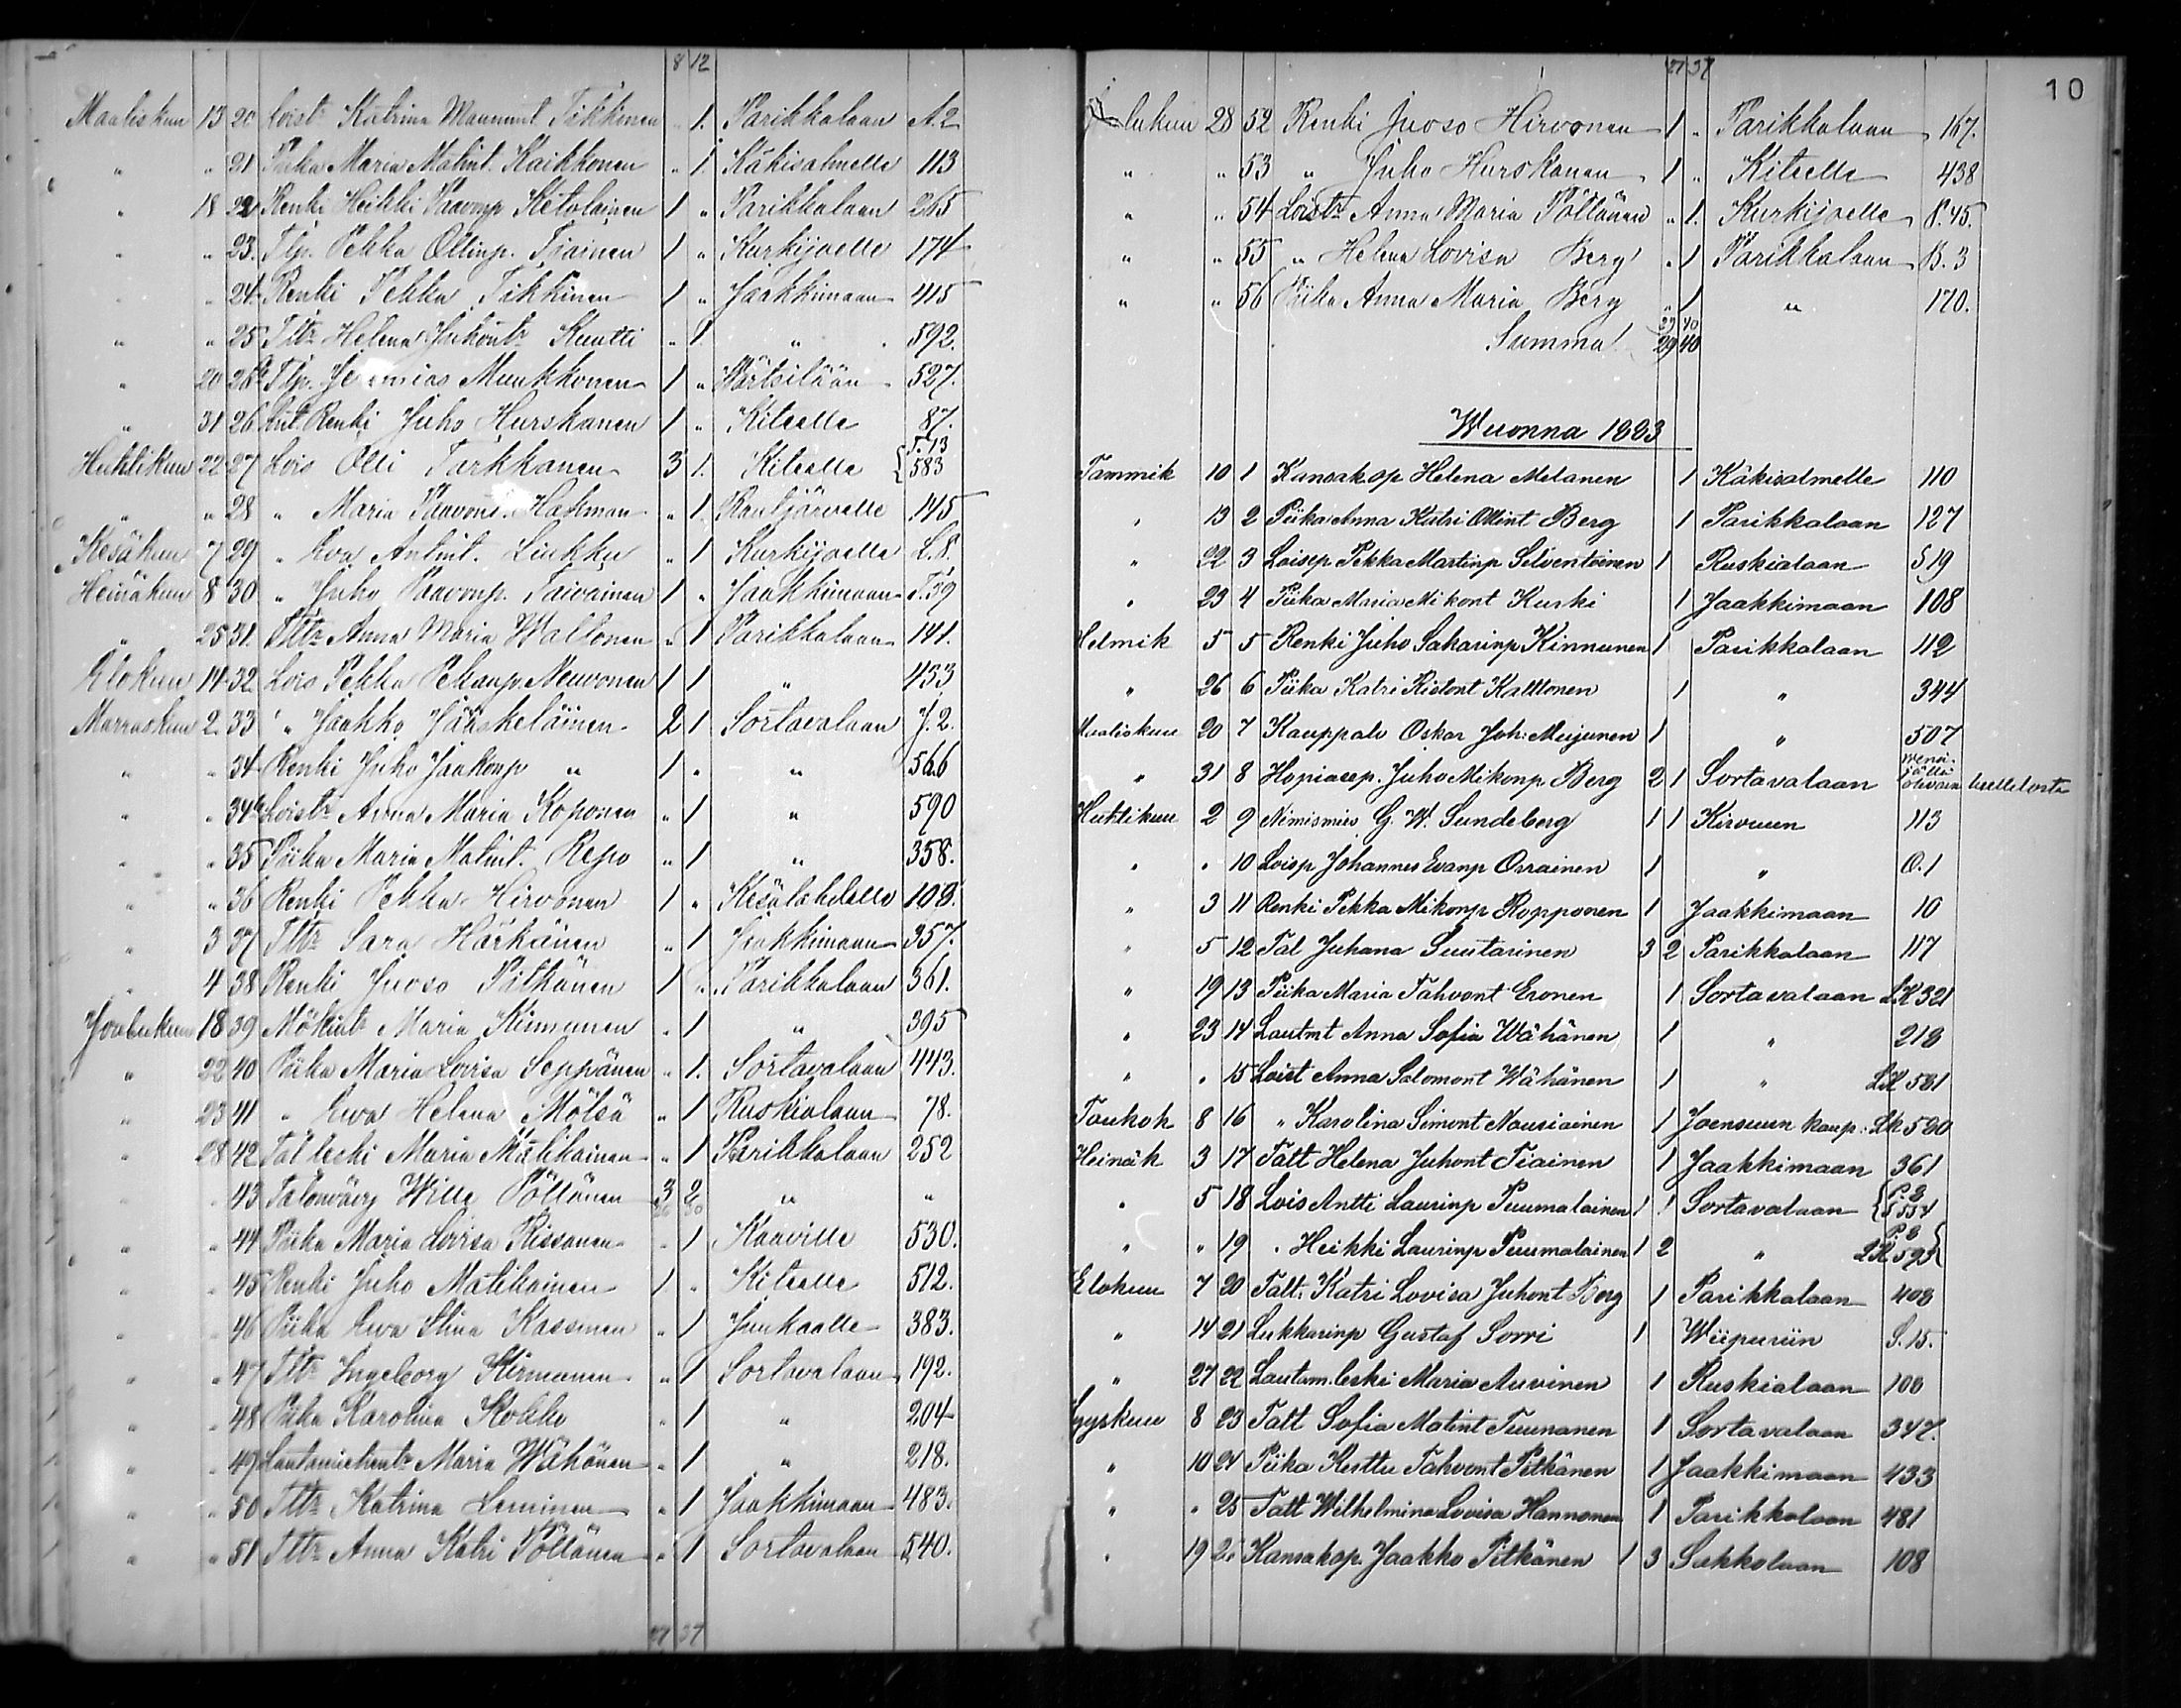 8 12
Maaliskun 13 20 Loistr Katrina Maununt. Tikkinen " 1. Parikkalaan A. 2
" " 21 Piika Maria Matint. Kaikkonen " 1. Käkisalmelle 113
" 18 22 Renki Heikki Paavonp Ketolainen 1 " Parikkalaan 265
" " 23. Tlp. Pekka Ollinp. Tiainen 1 " Kurkijoelle 174
" " 24. Renki Pekka Tikkinen 1 " Jaakkimaan 415
" " 25 Tttr Helena Juhontr Kuutti " 1 " 592.
" 20 26b Tlp. Jeremias Muukkonen 1 " Wärtsilään 527.
" 31 26 Renki Juho Hurskanen 1 " Kiteelle 87.
Huhtikun 22 27 Lois Olli Tarkkanen 3 1. Kiteelle { T. 13 583
" " 28 " Maria Paavont. Hakman " 1. Rautjärvelle 145
Kesäkun 7 29 " Eva Antint. Liukku " 1 Kurkijoelle L. 8.
Heinäkun 8 30 " Juho Paavonp. Taivainen 1 " Jaakkimaan T. 39
" 25 31. Tttr Anna Maria Waltonen " 1 Parikkalaan 141.
Elokun 14 32 Lois Pekka Pekanp Neuvonen 1 1 " 453
Marraskun 2. 33 " Jaakko Jääskeläinen 2 1 Sortavalaan J. 2.
" " 34 Renki Juho Jaakonp " 1 " " 566
" " 34b Loistr Anna Maria Koponen " 1 " 590
" " 35 Piika Maria Matint. Repo " 1 " 358.
" " 36 Renki Pekka Hirvonen 1 " Kesälahdelle 109.
" 3 37 Tttr Sara Härkänen " 1 Jaakkimaan 357.
" 4 38 Renki Juoso Pitkänen 1 " Parikkalaan 361.
Joulukun 18 39 Mökintr Maria Kinnunen " 1 " 395
" 22 40 Piika Maria Lovisa Seppänen " 1. Sortavalaan 443.
" 23 41 " Ewa Helena Mölsä " 1 Ruskialaan 78.
" 28 42 Tal leski Maria Matikainen " 1 Parikkalaan 252
" " 43 Talonvävy Wille Pöllänen 3 2 " "
" " 44 Piika Maria Lovisa Rissanen " 1 Kaaville 530.
" " 45 Renki Juho Matikainen 1 " Kiteelle 512.
" " 46 Piika Ewa Stina Kassinen " 1 Juukaalle 383.
" " 47 Tttr Ingeborg Kinnunen " 1 Sortavalaan 192.
" " 48 Piika Karolina Kokko " 1 " 204
" " 49 Lautamiehentr Maria Wähänen " 1 " 218.
" " 50 Tttr Katrina Leminen " 1 Jaakkimaan 483.
" " 51 Tttr Anna Katri Pöllänen " 1 Sortavalaan 540.
27 37
10
27 37
lukun 28 52 Renki Juoso Hirvonen 1 " Parikkalaan 167.
" " 53 " Juho Hurskanen 1 " Kiteelle 438
" " 54 Loistr Anna Maria Pöllänen " 1. Kurkijoelle P. 45.
" " 55 " Helena Lovisa Berg " 1 Parikkalaan B. 3
" " 56 Piika Anna Maria Berg " 1 " 170.
29 40
Summa 29 40
Wuonna 1883
Tammik 10 1 Kansakop Helena Melanen 1 Käkisalmelle 110
" 13 2 Piika Anna Katri Ollint Berg 1 Parikkalaan 127
" 22 3 Loisep Pekka Martinp Silventoinen 1 Ruskialaan S 19
" 23 4 Piika Maria Mikont Kurki 1 Jaakkimaan 108
Helmik 5 5 Renki Juho Sakarinp Kinnunen 1 Parikkalaan 112
" 26 6 Piika Katri Ristont Kalttonen 1 " 344
Maaliskuu 20 7 Kauppalv Oskar Joh: Meijunen 1 " 507
" 31 8 Hopiasep. Juho Mikonp Berg 2 1 Sortavalaan Wenäjällä olevain luettelosta
Huhtikuu 2 9 Nimismies G. W. Sundeberg 1 1 Kirvuun 113
" " 10 Loisp Johannes Evanp Orrainen 1 " O. 1
" 3 11 Renki Pekka Mikonp Ropponen 1 Jaakkimaan 10
" 5 12 Tal Juhana Suutarinen 3 2 Parikkalaan 117
" 19 13 Piika Maria Tahvont Eronen 1 Sortavalaan LK 321
" 23 14 Lautmt Anna Sofia Wähänen 1 " 218
" " 15 Loist Anna Salomont Wähänen 1 " LK 581
Toukok 8 16 " Karolina Simont Nousiainen 1 Joensuun kaup: Lk 520
Heinäk 3 17 Tatt Helena Juhont Tiainen 1 Jaakkimaan 361
" 5 18 Lois Antti Laurinp Puumalainen 1 1 Sortavalaan { P. 8 554
" " 19 " Heikki Laurinp Puumalainen 1 2 " P. 8 LK 593 }
Elokuu 7 20 Talt. Katri Lovisa Juhont Berg 1 Parikkalaan 408
" 14 21 Lukkarinp Gustaf Sorri 1 Wiipuriin S. 15.
" 27 22 Lautam. leski Maria Auvinen 1 Ruskialaan 100
Syyskuu 8 23 Tatt Sofia Matint Tuunanen 1 Sortavalaan 347.
" 10 24 Piika Kerttu Tahvont Pitkänen 1 Jaakkimaan 433
" " 25 Tatt Wilhelmina Lovisa Hannonen 1 Parikkalaan 481
" 19 26 Kansakop. Jaakko Pitkänen 1 3 Sakkolaan 108